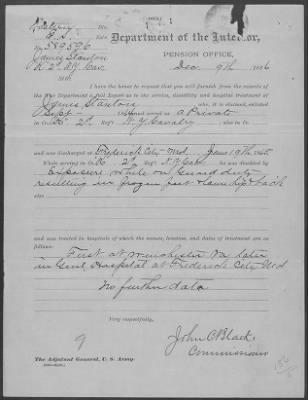 E. S.
Department of the Interior,
No. 589596
PENSION OFFICE,
James Stanton
K 2d N Y Cav.
Dec 9th 1886
SIR:
I have the honor to request that you will furnish from the records of the
War Department a full Report as to the service, disability and hospital treatment of
James Stanton who, it is claimed, enlisted
Sept and served as a Private
in Co K 2d Reg't N Y Cavalry also in
and was discharged at Frederick City Md. June 19th 1865
While serving in Co. K 2d Reg't N Y Cav he was disabled by
Exposure while on Guard duty
resulting in frozen feet & lame hip & back
also
and was treated in hospitals of which the names, location, and dates of treatment are as
follows:
First at Winchester Va later
in Genl Hospital at Frederick City Md
No further data
Very respectfully,
John C Black
Commissioner
The Adjutant General, U. S. Army.